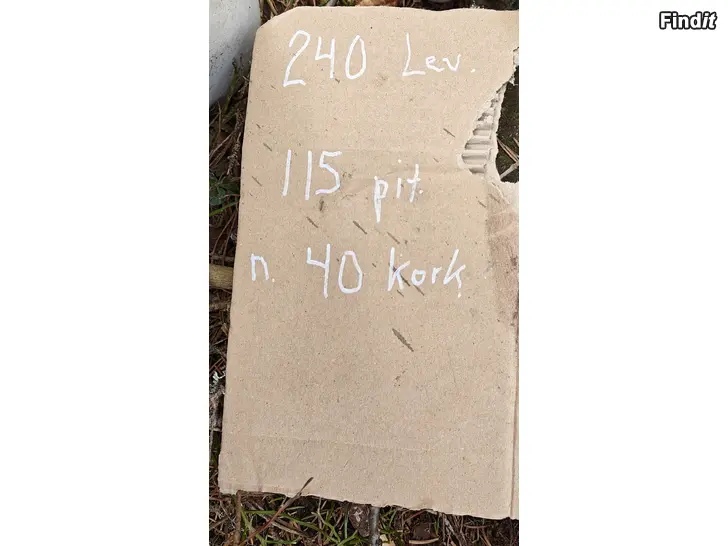 Findit
240 Lev.
115 pit.
n. 40 kork.